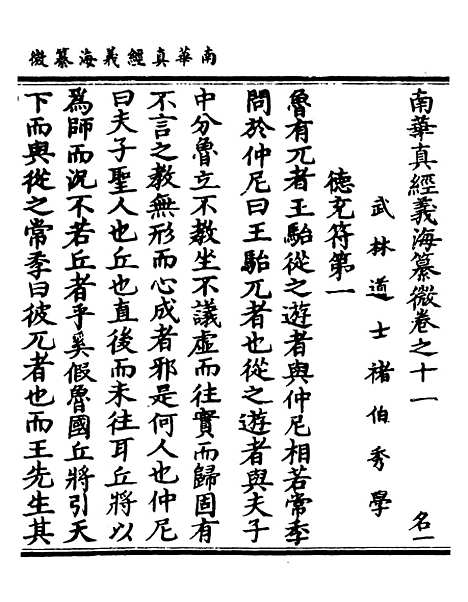 南華真經義海纂微
南華真經義海纂微卷之十一 名一
武林道士褚伯秀學
德充符第一
魯有兀者王駘從之遊者與仲尼相若常季
問於仲尼曰王駘兀者也從之遊者與夫子
中分魯立不教坐不議虛而往實而歸固有
不言之教無形而心成者邪是何人也仲尼
曰夫子聖人也丘也直後而未往耳丘將以
為師而況不若丘者乎奚假魯國丘將引天
下而與從之常季曰彼兀者也而王先生其